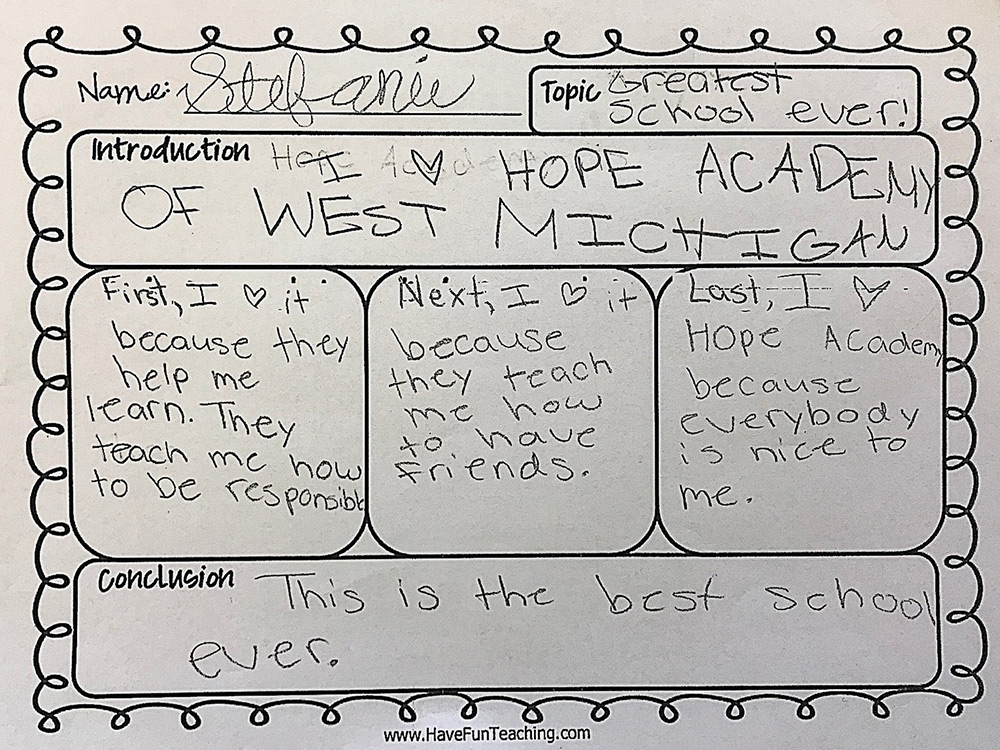 Name: Stefanie
Topic Greatest
School ever!
Introduction Hope Academy
I ♡ HOPE ACADEMY
OF WEST MICHIGAN
First, I ♡ it
because they
help me
learn. They
teach me how
to be responsibl
Next, I ♡ it
because
they teach
me how
to have
friends.
Last, I ♡
Hope Academy
because
everybody
is nice to
me.
Conclusion This is the best school
ever.
www.HaveFunTeaching.com